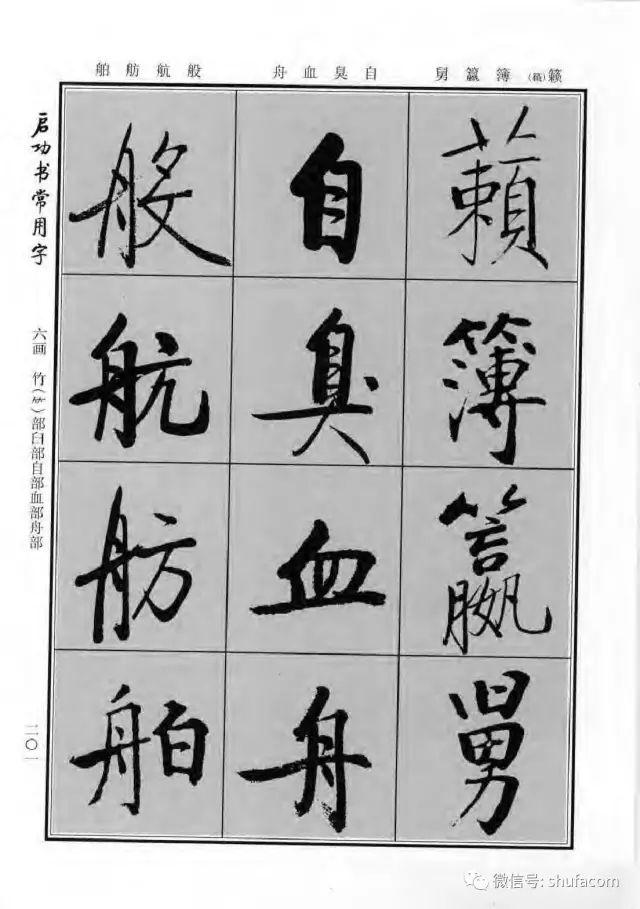 籁(籟)簿籝舅 自臭血舟 般航舫舶
籟簿籝舅
自臭血舟
般航舫舶
启功书常用字
六画 竹(⺮)部臼部自部血部舟部
二〇一
微信号: shufacom